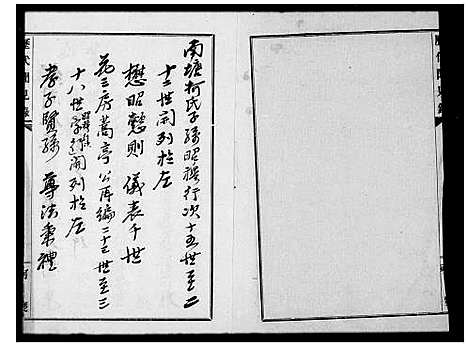 南塘柯氏子孫昭穆行次十五世至二
十二世開列於左
懋昭懿則 儀表千世
若三房蒿亭公再編二十三世至三
十八世字行開列於左
孝子賢孫 尊法秉禮
歷代聞見錄